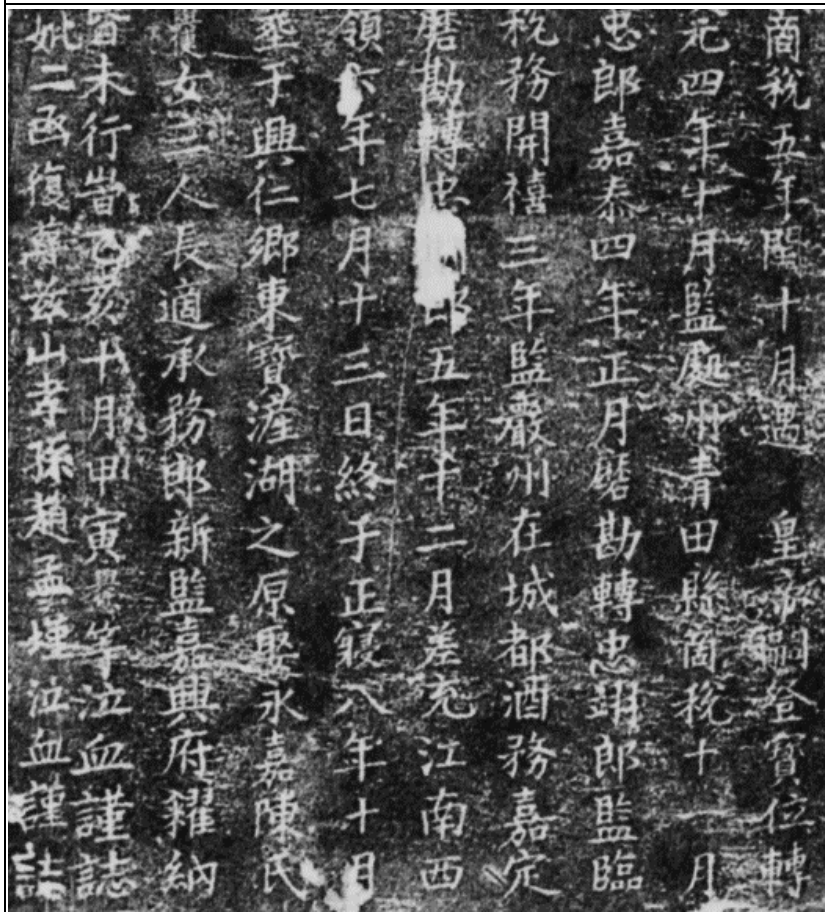 商稅五年閏十月遇 皇帝嗣登寶位轉
元四年十月監處州青田縣商稅十一月
忠郎嘉泰四年正月磨勘轉忠翊郎監臨
稅務開禧三年監嚴州在城都酒務嘉定
磨勘轉忠郎五年十二月差充江南西
領六年七月十三日終于正寢八年十月
塟于興仁鄉東寶湖之原娶永嘉陳氏
女三人長適承務郎新監嘉興府糴納
皆未行旹乙亥十月甲寅等泣血謹誌
妣二函復葬茲山孝孫趙孟堙泣血謹誌